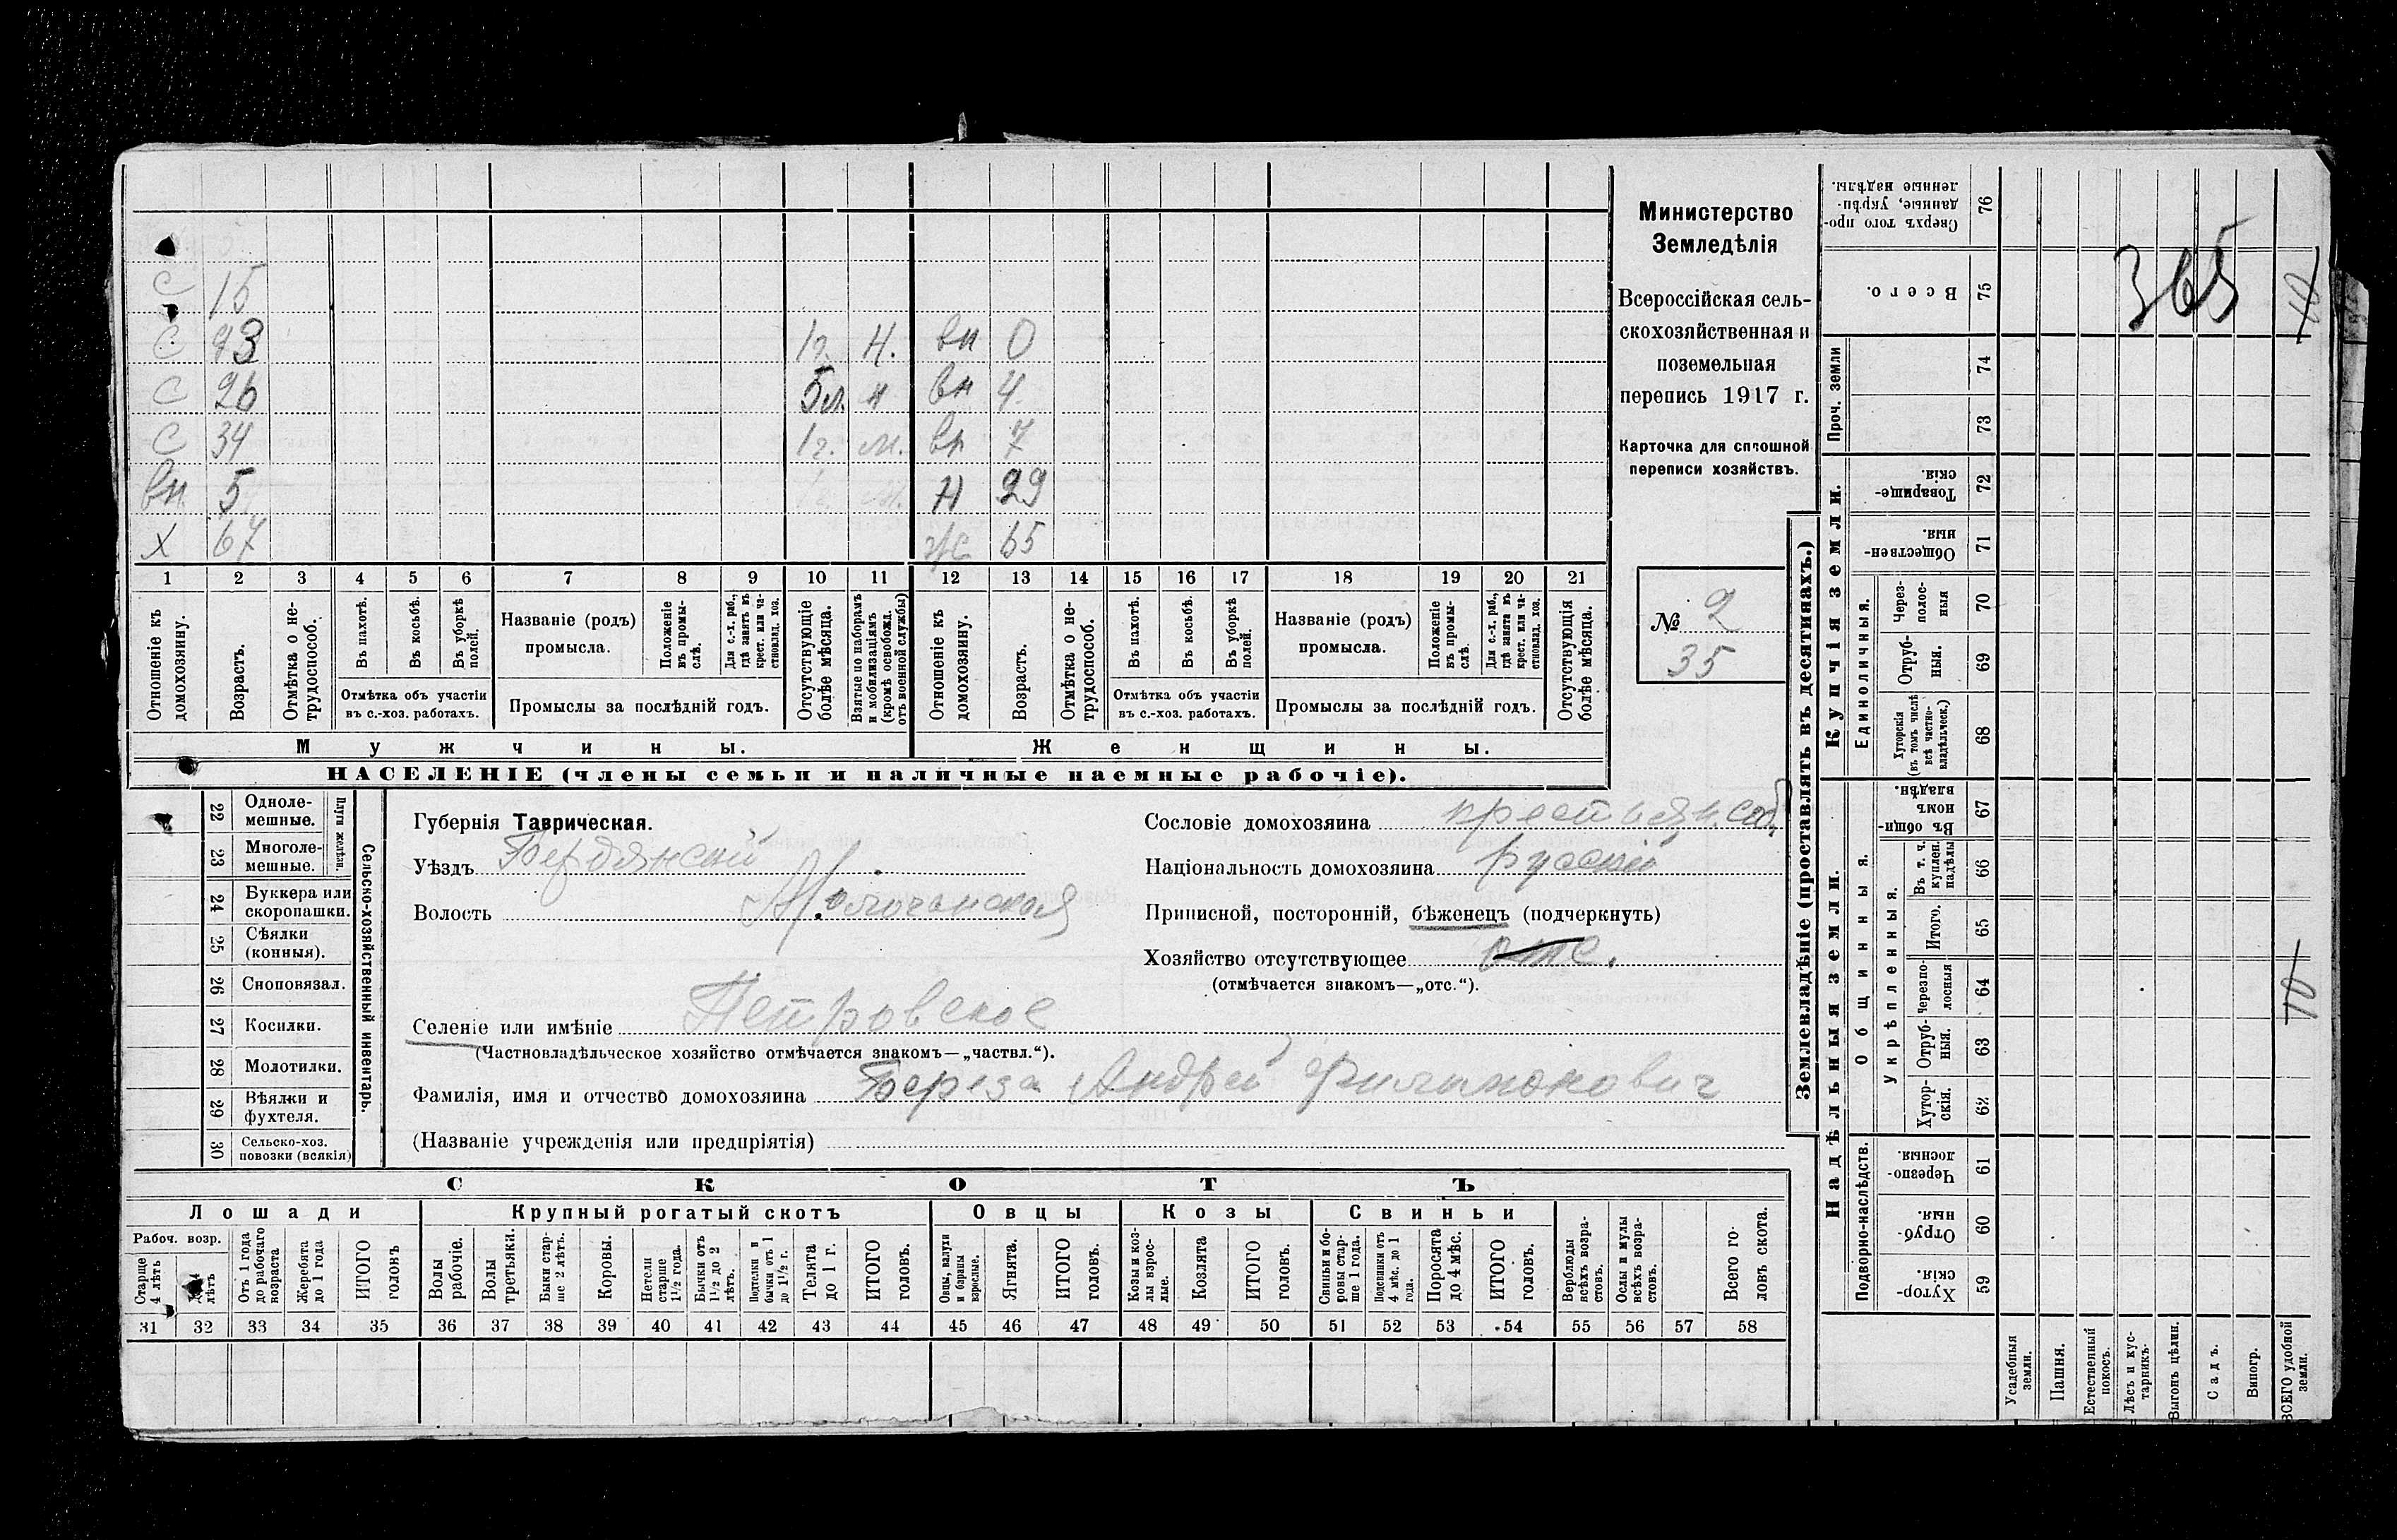 С 15
С 23 1г. Н. вн 0
С 26 5л. н вн 4
С 34 1г. м. вн 7
вн. 5 Н 29
Х 67 ж 65
1 2 3 4 5 6 7 8 9 10 11 12 13 14 15 16 17 18 19 20 21
Отношеніе къ домохозяину.
Возрастъ.
Отмѣтка о не-трудоспособ.
Въ пахотѣ.
Въ косьбѣ.
Въ уборкѣ полей.
Отмѣтка объ участіи въ с.-хоз. работахъ.
Названіе (родъ) промысла.
Положеніе въ промы-слѣ.
Для с.-х. раб., гдѣ занятъ въ крест. или ча-стновлад. хоз.
Промыслы за послѣдній годъ.
Отсутствующіе болѣе мѣсяца.
Взятые по наборамъ и мобилизаціямъ (кромѣ освобожд. отъ военной службы)
Отношеніе къ домохозяину.
Возрастъ.
Отмѣтка о не-трудоспособ.
Въ пахотѣ.
Въ косьбѣ.
Въ уборкѣ полей.
Отмѣтка объ участіи въ с.-хоз. работахъ.
Названіе (родъ) промысла.
Положеніе въ промы-слѣ.
Для с.-х. раб., гдѣ занята въ крест. или ча-стновлад. хоз.
Промыслы за послѣдній годъ.
Отсутствующія болѣе мѣсяца.
Мужчины. Женщины.
НАСЕЛЕНІЕ (члены семьи и наличные наемные рабочіе).
Министерство
Земледѣлія
Всероссійская сель-
скохозяйственная и
поземельная
перепись 1917 г.
Карточка для сплошной
переписи хозяйствъ.
№ 2
35
22 Одноле-мешные.
23 Многоле-мешные.
Плуги желѣзн.
24 Буккера или скоропашки.
25 Сѣялки (конныя).
26 Сноповязал.
27 Косилки.
28 Молотилки.
29 Вѣялки и фухтеля.
30 Сельско-хоз. повозки (всякія)
Сельско-хозяйственный инвентарь.
Губернія Таврическая.
Уѣздъ Бердянскій
Волость Молочанская
Селеніе или имѣніе Петровское
(Частновладѣльческое хозяйство отмѣчается знакомъ—„частвл.“).
Фамилія, имя и отчество домохозяина Береза Андрей Филимонович
(Названіе учрежденія или предпріятія)
Сословіе домохозяина крестьян. соб.
Національность домохозяина русскій
Приписной, посторонній, бѣженецъ (подчеркнуть)
Хозяйство отсутствующее отс.
(отмѣчается знакомъ—„отс.“).
СКОТЪ
Лошади Крупный рогатый скотъ Овцы Козы Свиньи
Рабоч. возр.
Старше 4 лѣтъ
лѣтъ
Отъ 1 года до рабочаго возраста
Жеребята до 1 года
ИТОГО головъ
Волы рабочіе.
Волы третьяки.
Быки стар-ше 2 лѣтъ.
Коровы.
Нетели старше 1½ года.
Бычки отъ 1½ до 2 лѣтъ.
Подтелки и бычки отъ 1 до 1½ г.
Телята до 1 г.
ИТОГО головъ.
Овцы, валухи и бараны взрослые.
Ягнята.
ИТОГО головъ.
Козы и коз-лы взрос-лые.
Козлята
ИТОГО головъ.
Свиньи и бо-ровы стар-ше 1 года.
Подсвинки отъ 4 мѣс. до 1 года.
Поросята до 4 мѣс.
ИТОГО головъ.
Верблюды всѣхъ возра-стовъ.
Ослы и мулы всѣхъ возра-стовъ.
Всего го-ловъ скота.
31 32 33 34 35 36 37 38 39 40 41 42 43 44 45 46 47 48 49 50 51 52 53 54 55 56 57 58
Землевладѣніе (проставлять въ десятинахъ.)
Надѣльныя земли. Купчія земли. Проч. земли
Подворно-наслѣдств.
Общинныя.
Укрѣпленныя.
Единоличныя.
Сверхъ того про-данные, укрѣп-ленные надѣлы. 76
Всего. 75
74
73
Товарище-скія. 72
Обществен-ныя. 71
Через-полос-ныя 70
Отруб-ныя. 69
Хуторскія (въ томъ числѣ всѣ частно-владѣльческ.) 68
Въ общин-номъ владѣн. 67
Въ т. ч. куплен. надѣлы 66
Итого. 65
Черезпо-лосныя 64
Отруб-ныя. 63
Хутор-скія. 62
Черезпо-лосныя. 61
Отруб-ныя. 60
Хутор-скія. 59
Усадебныя земли.
Пашня.
Естественный покосъ.
Лѣсъ и кус-тарникъ.
Выгонъ цѣлин.
Садъ.
Виногр.
ВСЕГО удобной земли.
365
10
10